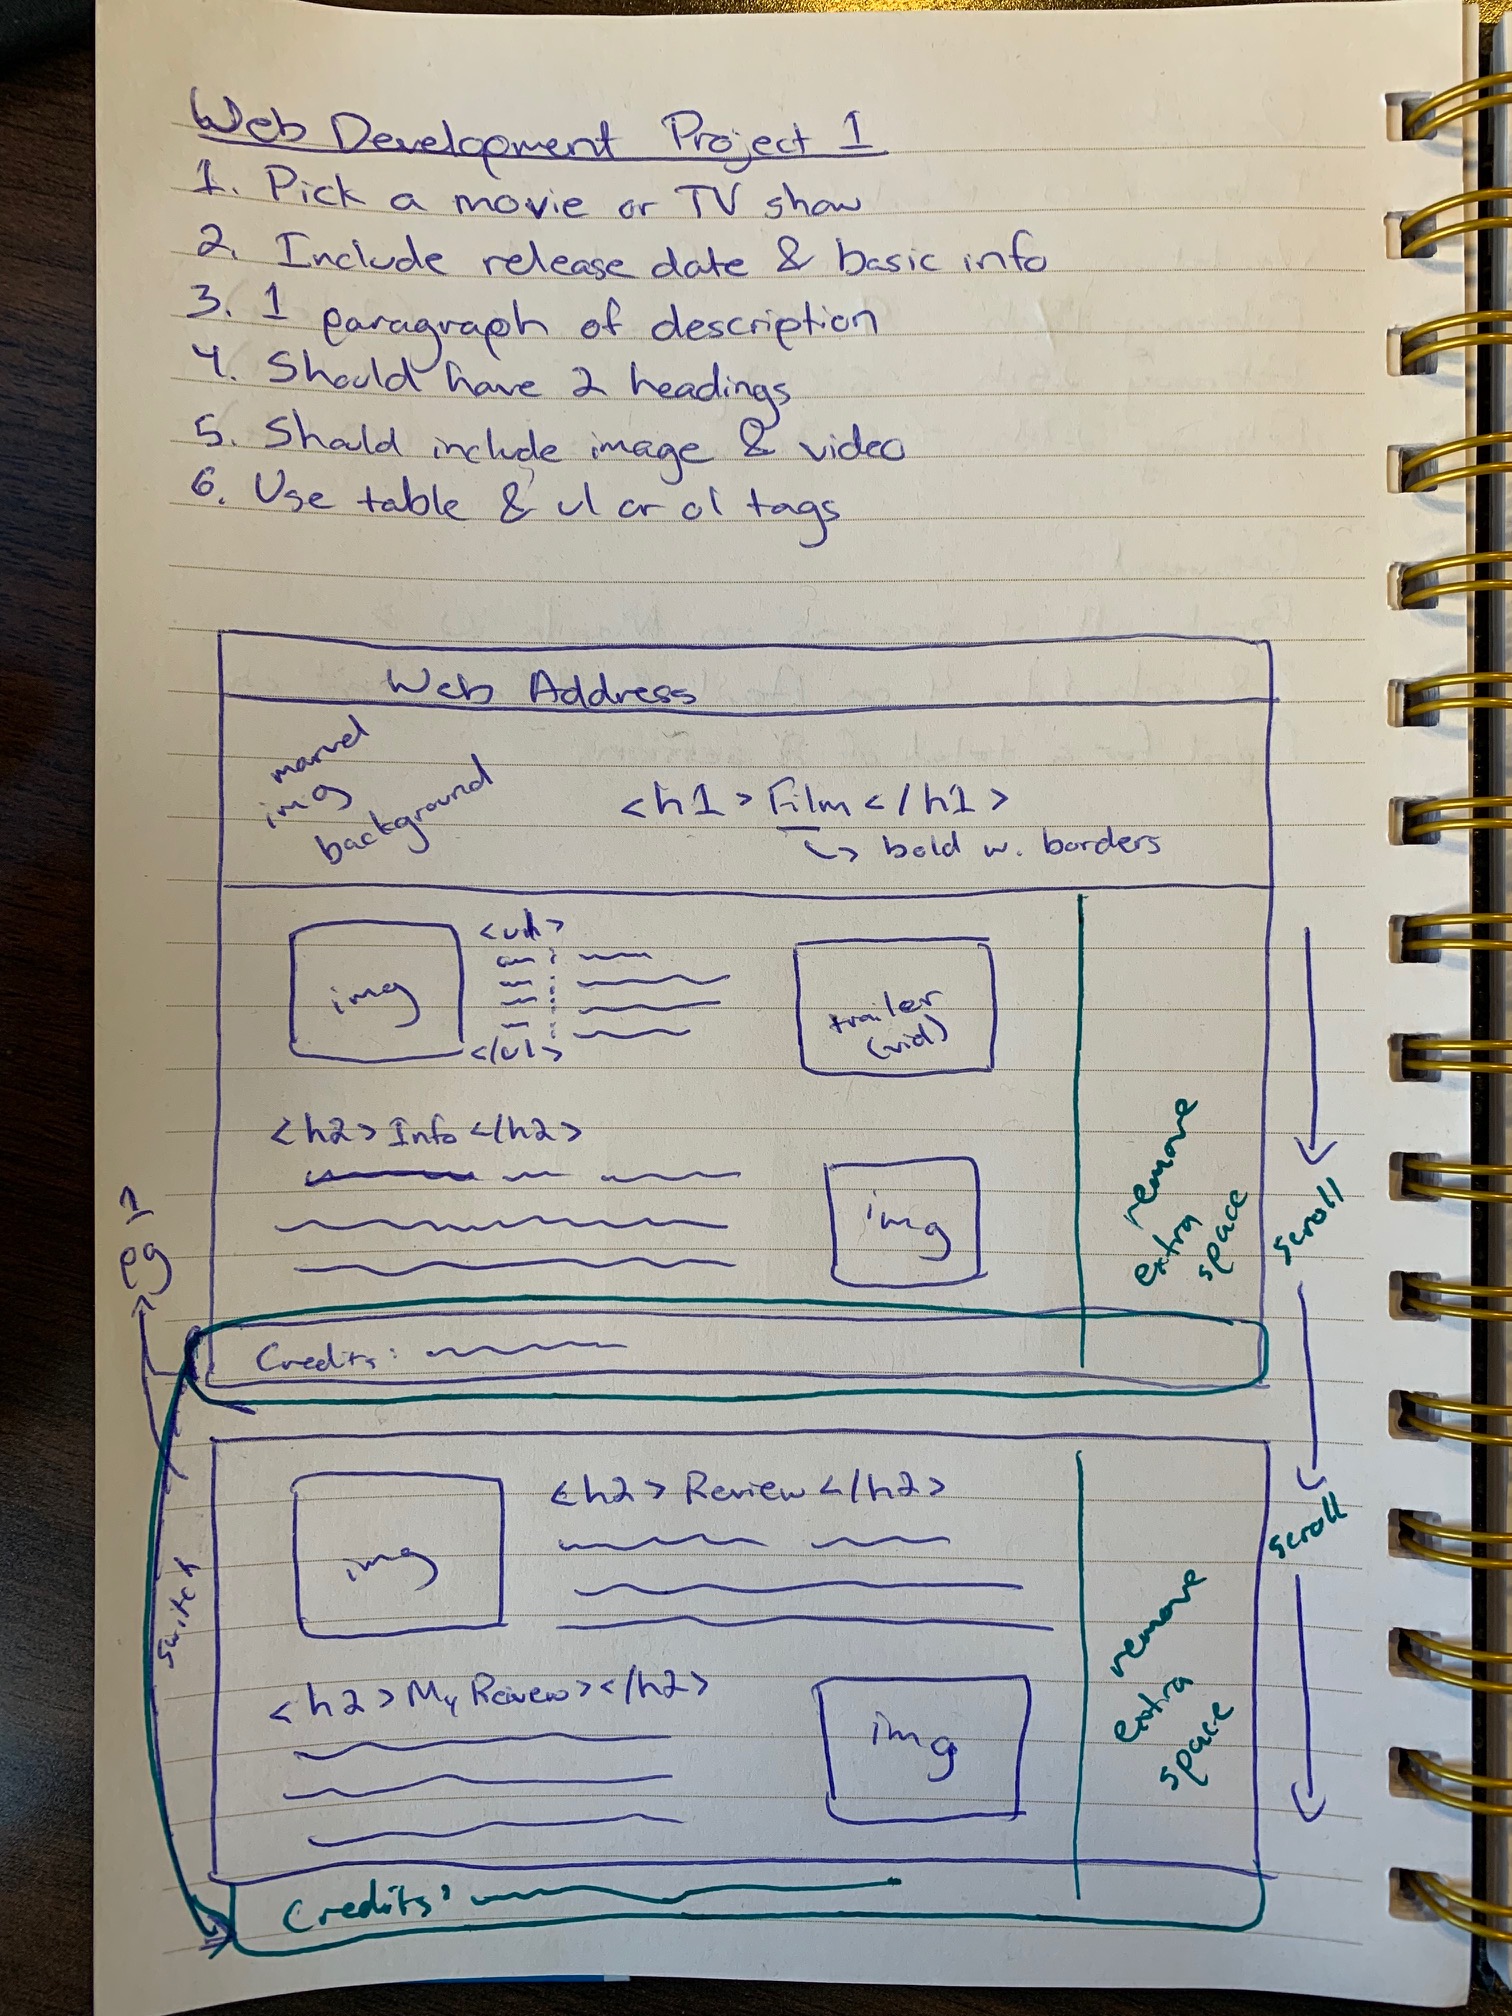 Web Development Project 1
1. Pick a movie or TV show
2. Include release date & basic info
3. 1 paragraph of description
4. Should have 2 headings
5. Should include image & video
6. Use table & ul or ol tags
Web Address
marvel
img
background
<h1> Film </h1>
↳ bold w. borders
<ul>
img
trailer
(vid)
</ul>
<h2> Info </h2>
img
remove
extra
space
scroll
pg 1
Credits:
<h2> Review </h2>
img
scroll
switch
remove
extra
space
<h2> My Review></h2>
img
Credits: